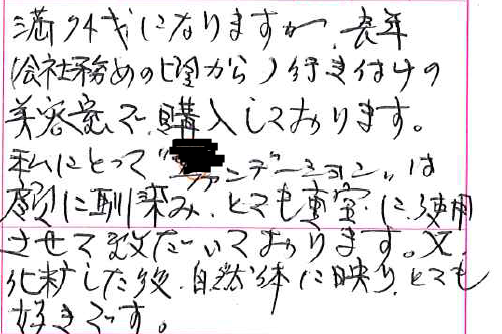 満74才になりますが、長年
(会社務めの頃から)行き付けの
美容室で購入しております。
私にとって"ファンデーション"は
顔に馴染み、とても重宝に使用
させて頂だいております。又、
化粧した後、自然体に映り、とても
好きです。